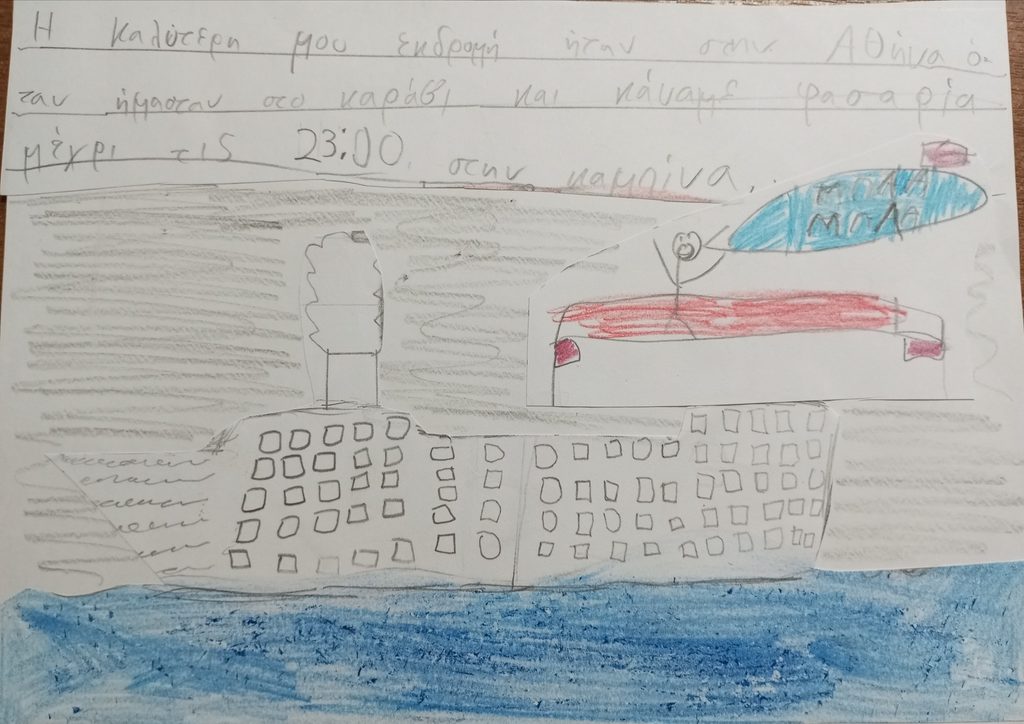 Η καλύτερη μου εκδρομή ήταν στην Αθήνα ό-
ταν ήμασταν στο καράβι και κάναμε φασαρία
μέχρι τις 23:00 στην καμπίνα..
ΜΠΛΑ
ΜΠΛΑ